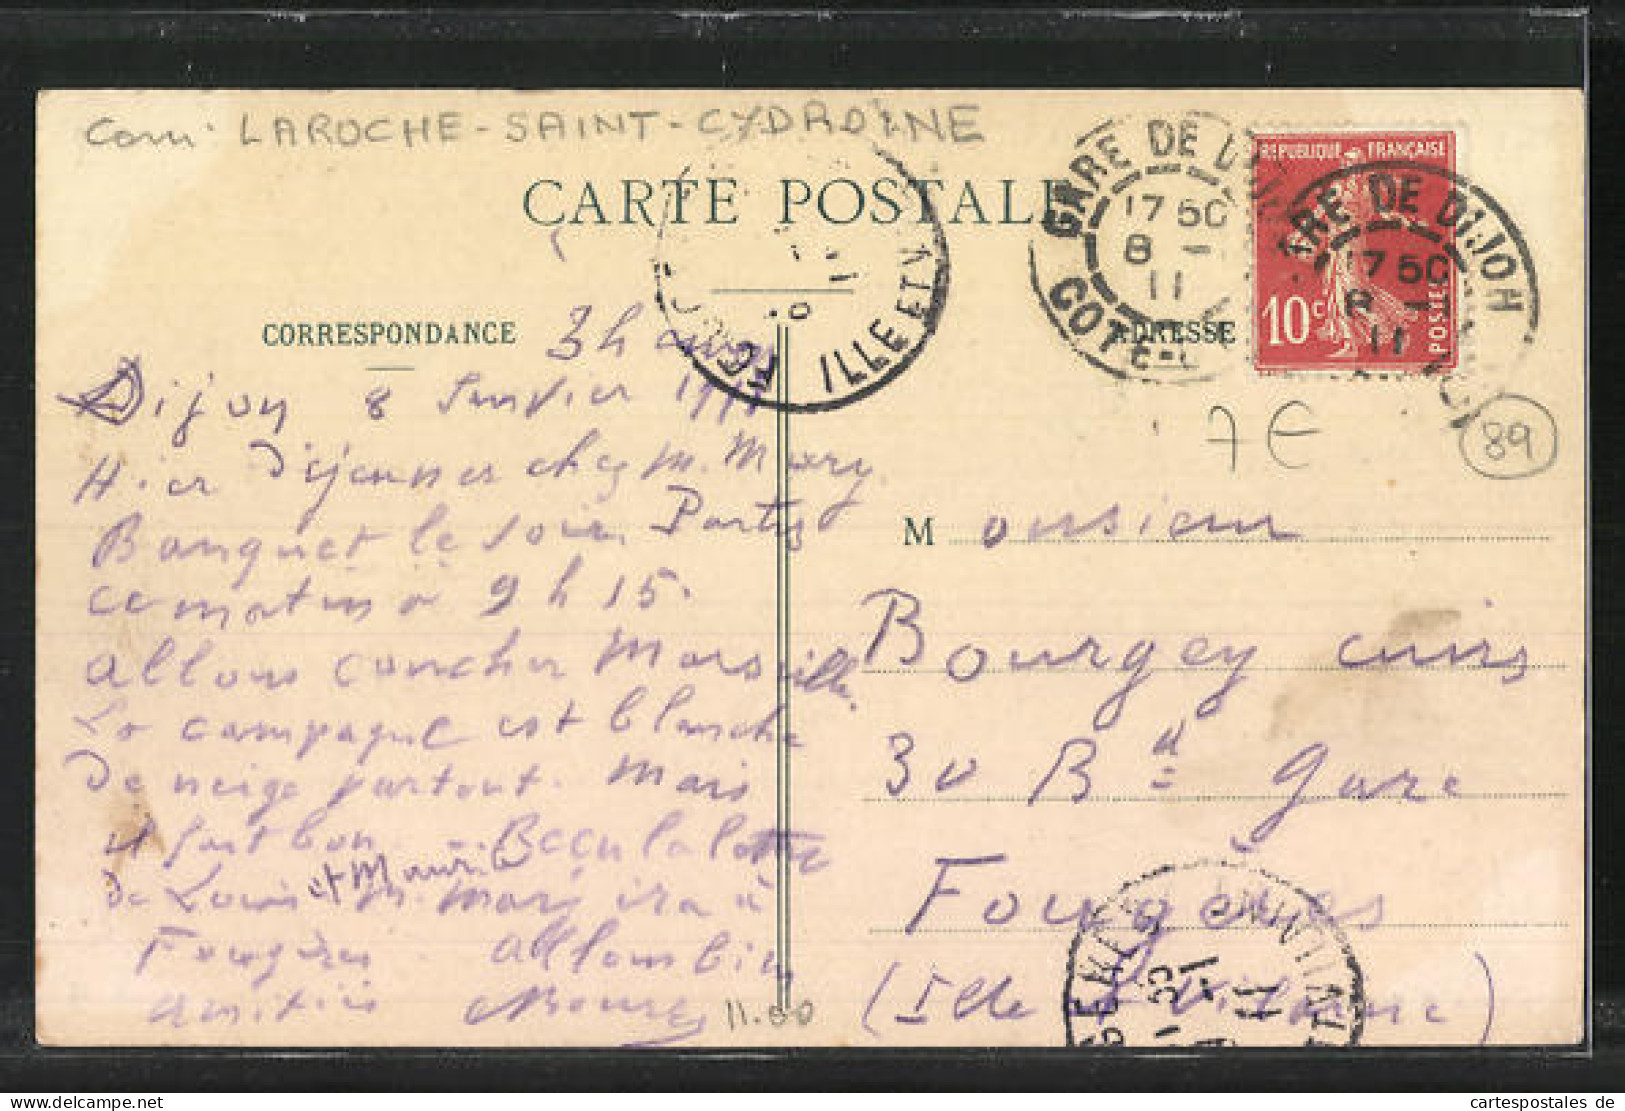 Com: LAROCHE-SAINT-CYDROINE
CARTE POSTALE
CORRESPONDANCE
ADRESSE
REPUBLIQUE FRANÇAISE
10c
POSTES
GARE DE DIJON
17 50
8 - 1
11
COTE-D'OR
GARE DE DIJON
17 50
8 - 1
11
ILLE ET V
7 E
89
3h
Dijon 8 Janvier 1911
Hier Déjeuner chez M. Mary
Banquet le soir. Partis
ce matin à 9 h 15.
allons coucher Marseille.
La campagne est blanche
De neige partout. Mais
il fait bon. - Reçu la lettre
de Louis et Maurice M. Mary ira à
Fougères allons bien
amitiés Bourgey
11.00
Monsieur
Bourgey cuirs
30 Bd Gare
Fougères
(Ille & Vilaine)
ILLE-ET-VILAINE
cartespostales de
www.delcampe.net